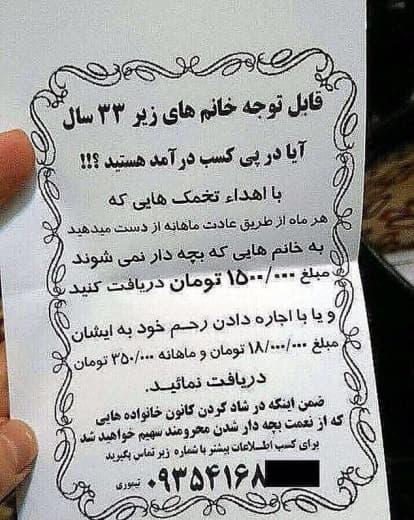 قابل توجه خانم های زیر ۳۳ سال
آیا در پی کسب درآمد هستید ؟!!
با اهداء تخمک هایی که
هر ماه از طریق عادت ماهانه از دست میدهید
به خانم هایی که بچه دار نمی شوند
مبلغ ۱۵۰۰/۰۰۰ تومان دریافت کنید
و یا با اجاره دادن رحم خود به ایشان
مبلغ ۱۸/۰۰۰/۰۰۰ تومان و ماهانه ۳۵۰/۰۰۰ تومان
دریافت نمائید.
ضمن اینکه در شاد کردن کانون خانواده هایی
که از نعمت بچه دار شدن محرومند سهیم خواهید شد
برای کسب اطلاعات بیشتر با شماره زیر تماس بگیرید
۰۹۳۵۴۱۶۸ تیموری